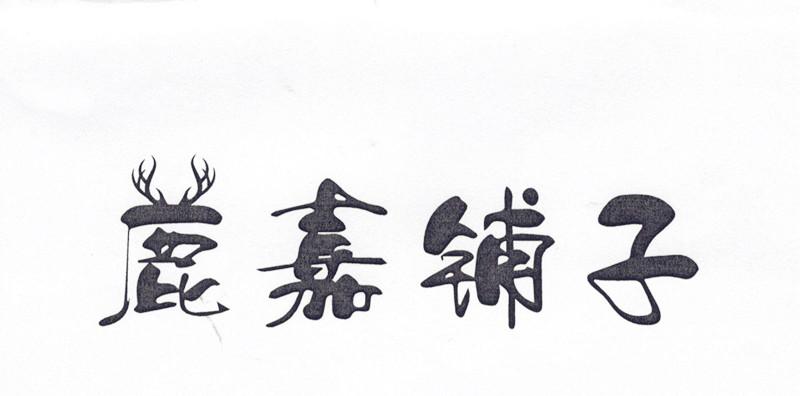 鹿嘉铺子